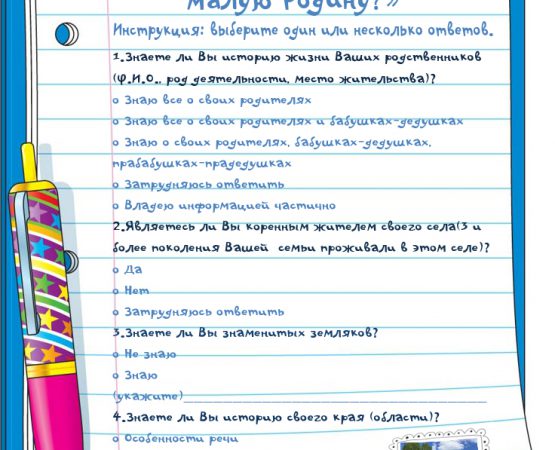 малую Родину?»
Инструкция: выберите один или несколько ответов.
1.Знаете ли Вы историю жизни Ваших родственников
(Ф.И.О., род деятельности, место жительства)?
o Знаю все о своих родителях
o Знаю все о своих родителях и бабушках-дедушках
o Знаю о своих родителях, бабушках-дедушках,
прабабушках-прадедушках
o Затрудняюсь ответить
o Владею информацией частично
2.Являетесь ли Вы коренным жителем своего села(3 и
более поколения Вашей семьи проживали в этом селе)?
o Да
o Нет
o Затрудняюсь ответить
3.Знаете ли Вы знаменитых земляков?
o Не знаю
o Знаю
(укажите)________________________________
4.Знаете ли Вы историю своего края (области)?
o Особенности речи